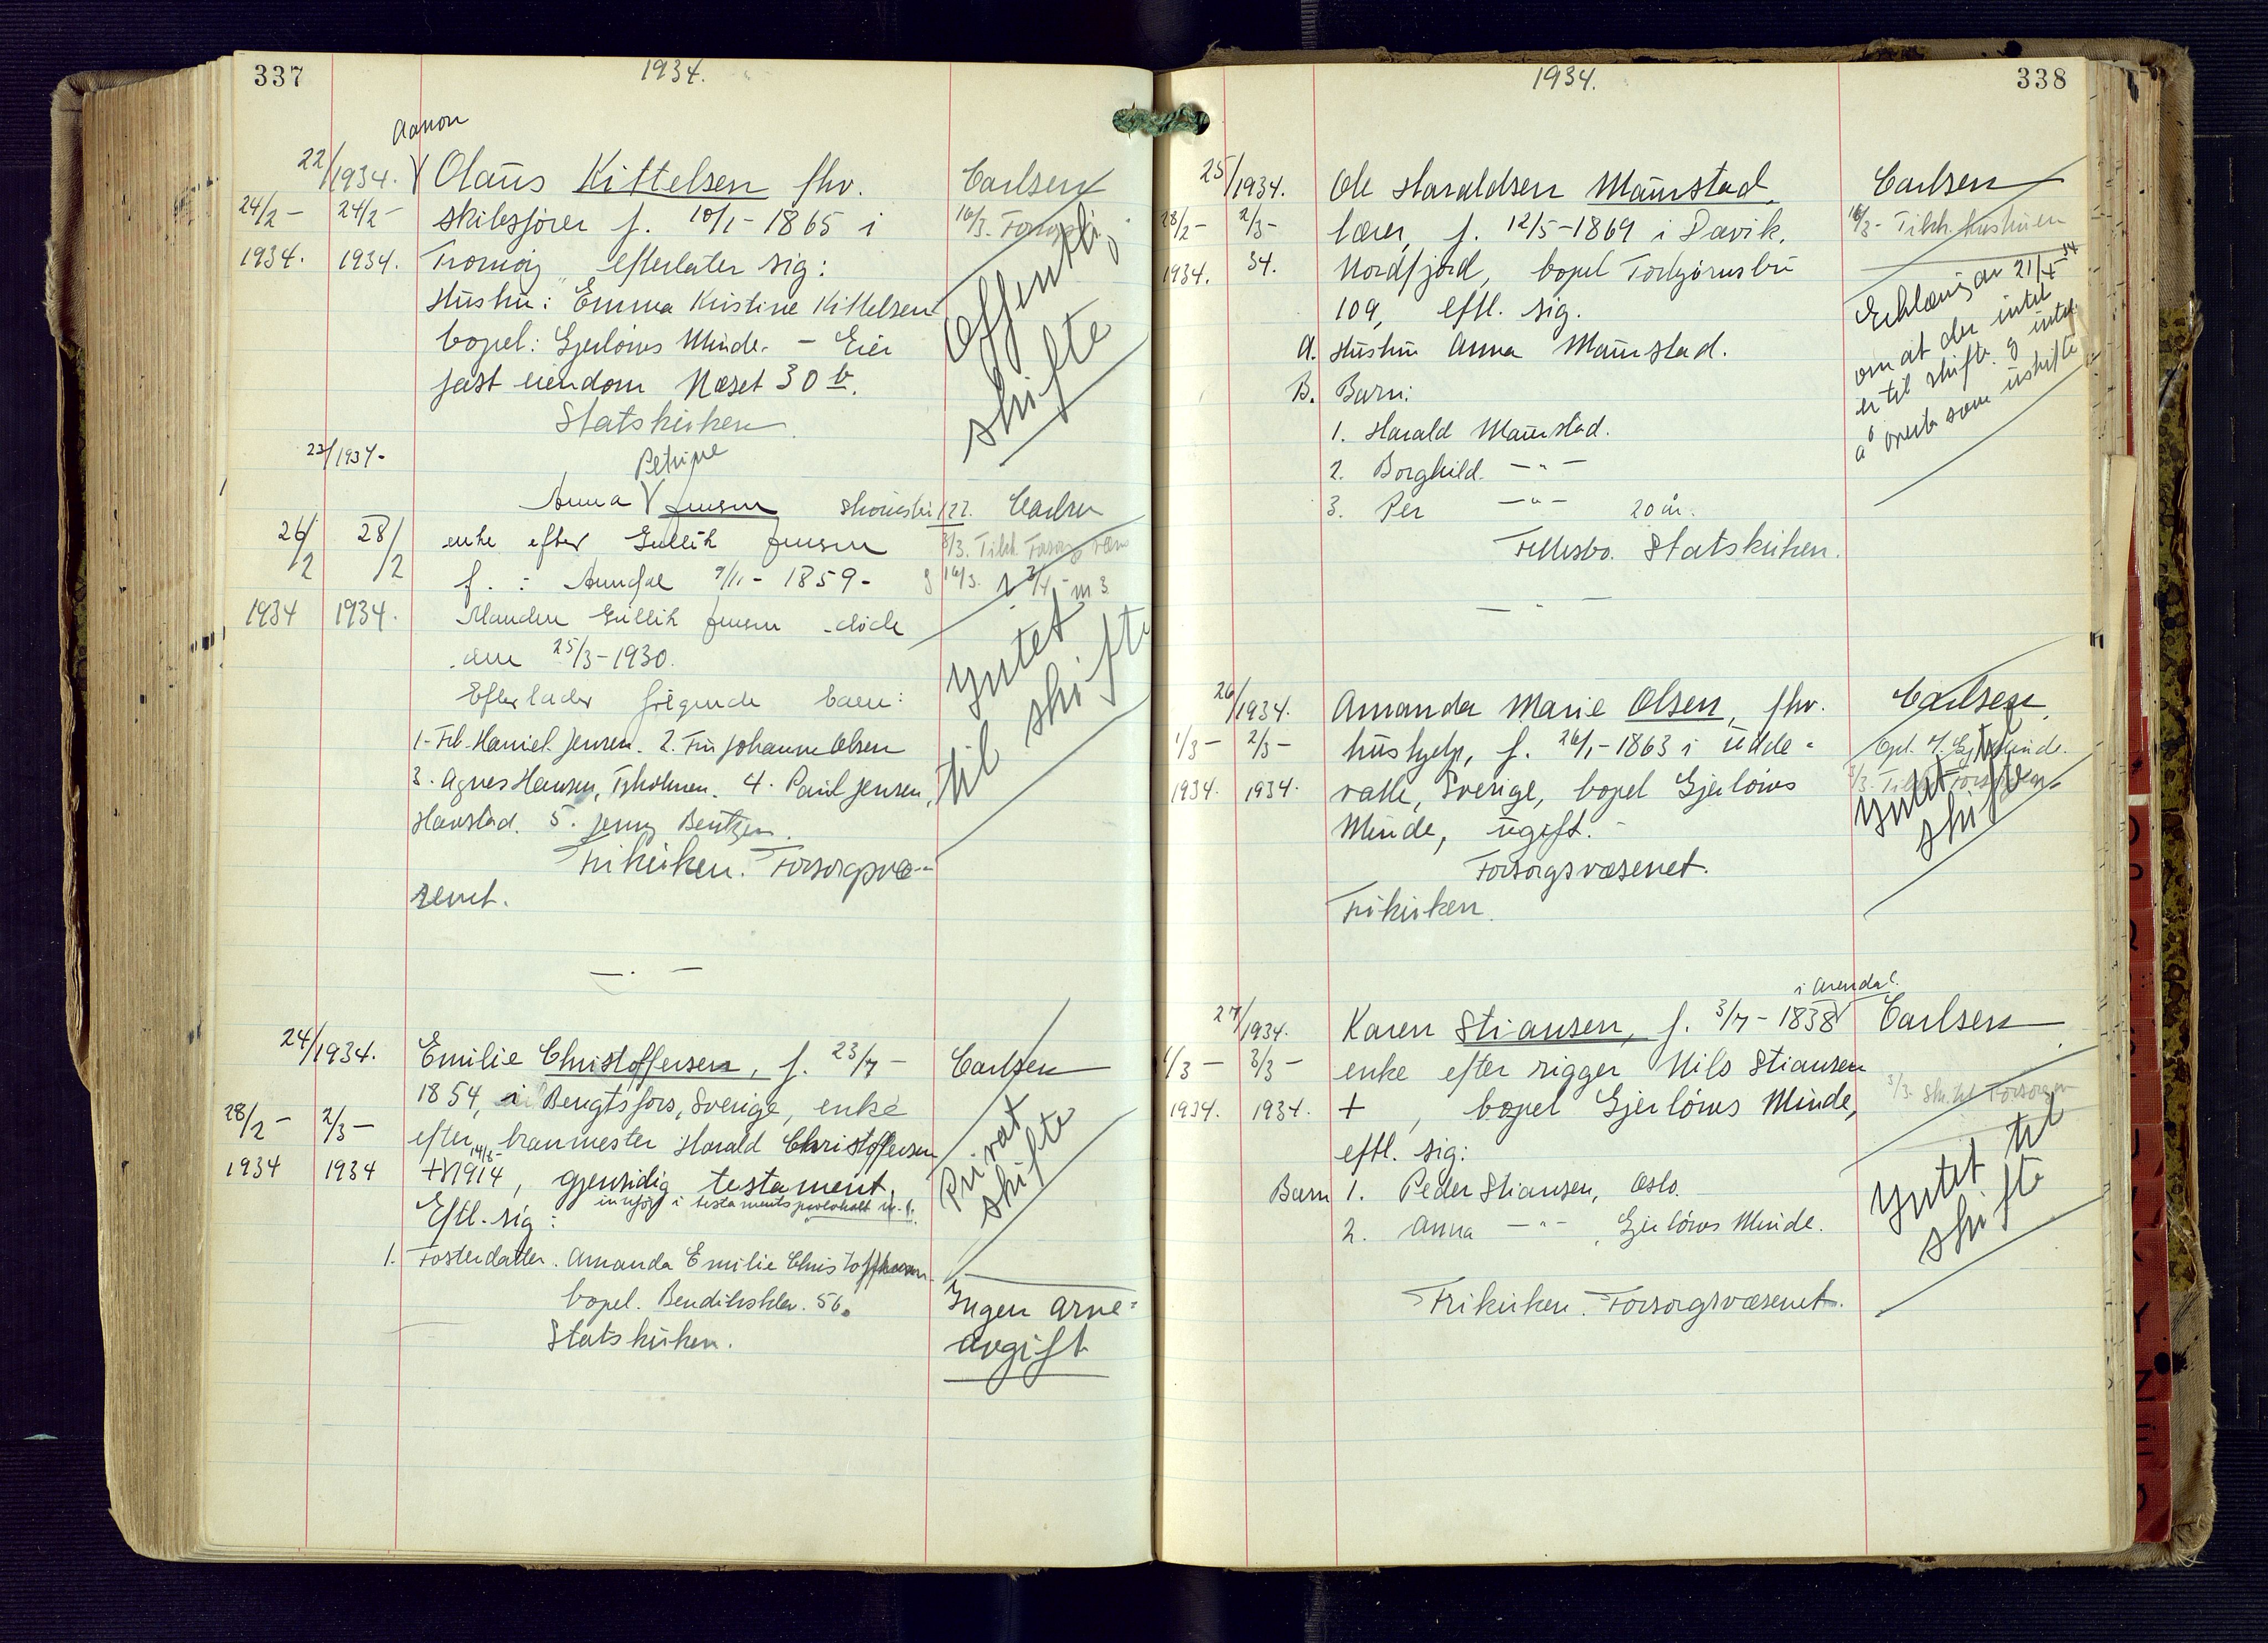 337
1934.
Aanon
22/1934. Olaus Kittelsen fhv. Carlsen
24/2- 24/2- skibsfører f. 10/1-1865 i 16/3.
1934. 1934. Tromøy efterlater sig: Offentlig
Hustru: Emma Kristine Kittelsen skifte
bopel: Gjerløws Minde. - Eier
fast eiendom Næset 30 b.
Statskirken.
23/1934-
Petrine
Anna Jensen 122. Carlsen
26/2 28/2 enke efter Gullik Jensen 3/3. Tilk. Forsorgsvæs
f. : Arendal 9/11-1859- 16/3.
1934 1934. Manden Gullik Jensen døde Intet
den 25/3-1930. til skifte
Efterlader følgende barn:
1. Frk. Harriet Jensen. 2. Fru Johanne Olsen
3. Agnes Hansen, Tyholmen. 4. Paul Jensen,
Havstad. 5. Jenny Bentzen.
Frikirken. Forsorgsvæ-
senet.
24/1934. Emilie Christoffersen, f. 23/7- Carlsen
1854, i Bengtsfors, Sverige, enke
28/2- 2/3- efter branmester Harald Christoffersen Privat
1934 1934 + 1914, gjensidig testament, skifte
innført i testamentsprotokoll
Eftl. sig:
1. Fosterdatter. Amanda Emilie Christoffersen
bopel. Bendiksklev. 56. Ingen arve=
Statskirken. avgift
338
1934.
25/1934. Ole Haraldsen Maurstad, Carlsen
28/2- 2/3- lærer, f. 12/5-1869 i Davik, 16/3- Tilk. hustruen
1934. 34. Nordfjord, bopel Torbjørnsbu Erklæring av 21/4-34
109, eftl. sig. om at der intet
A. Hustru Anna Maurstad. er til skifte og intet
B. Barn: å overta som uskifte
1. Harald Maurstad.
2. Borghild. -"-
3. Per -"- 20 år.
Fellesbo. Statskirken.
26/1934. Amanda Marie Olsen, fhv. Carlsen
1/3- 2/3- hushjelp, f. 26/1-1863 i Udde=
1934. 1934. valle, Sverige, bopel Gjerløws Intet til
Minde, ugift. skifte
Forsorgsvæsenet.
Frikirken.
i Arendal.
27/1934. Karen Stiansen, f. 3/7-1838 Carlsen
1/3- 3/3- enke efter rigger Nils Stiansen
1934. 1934. + , bopel Gjerløws Minde, 5/3. Sk. til Forsorgen
eftl. sig: Intet til
Barn 1. Peder Stiansen, Oslo. skifte
2. Anna -"-, Gjerløws Minde.
Frikirken. Forsorgsvæsenet.